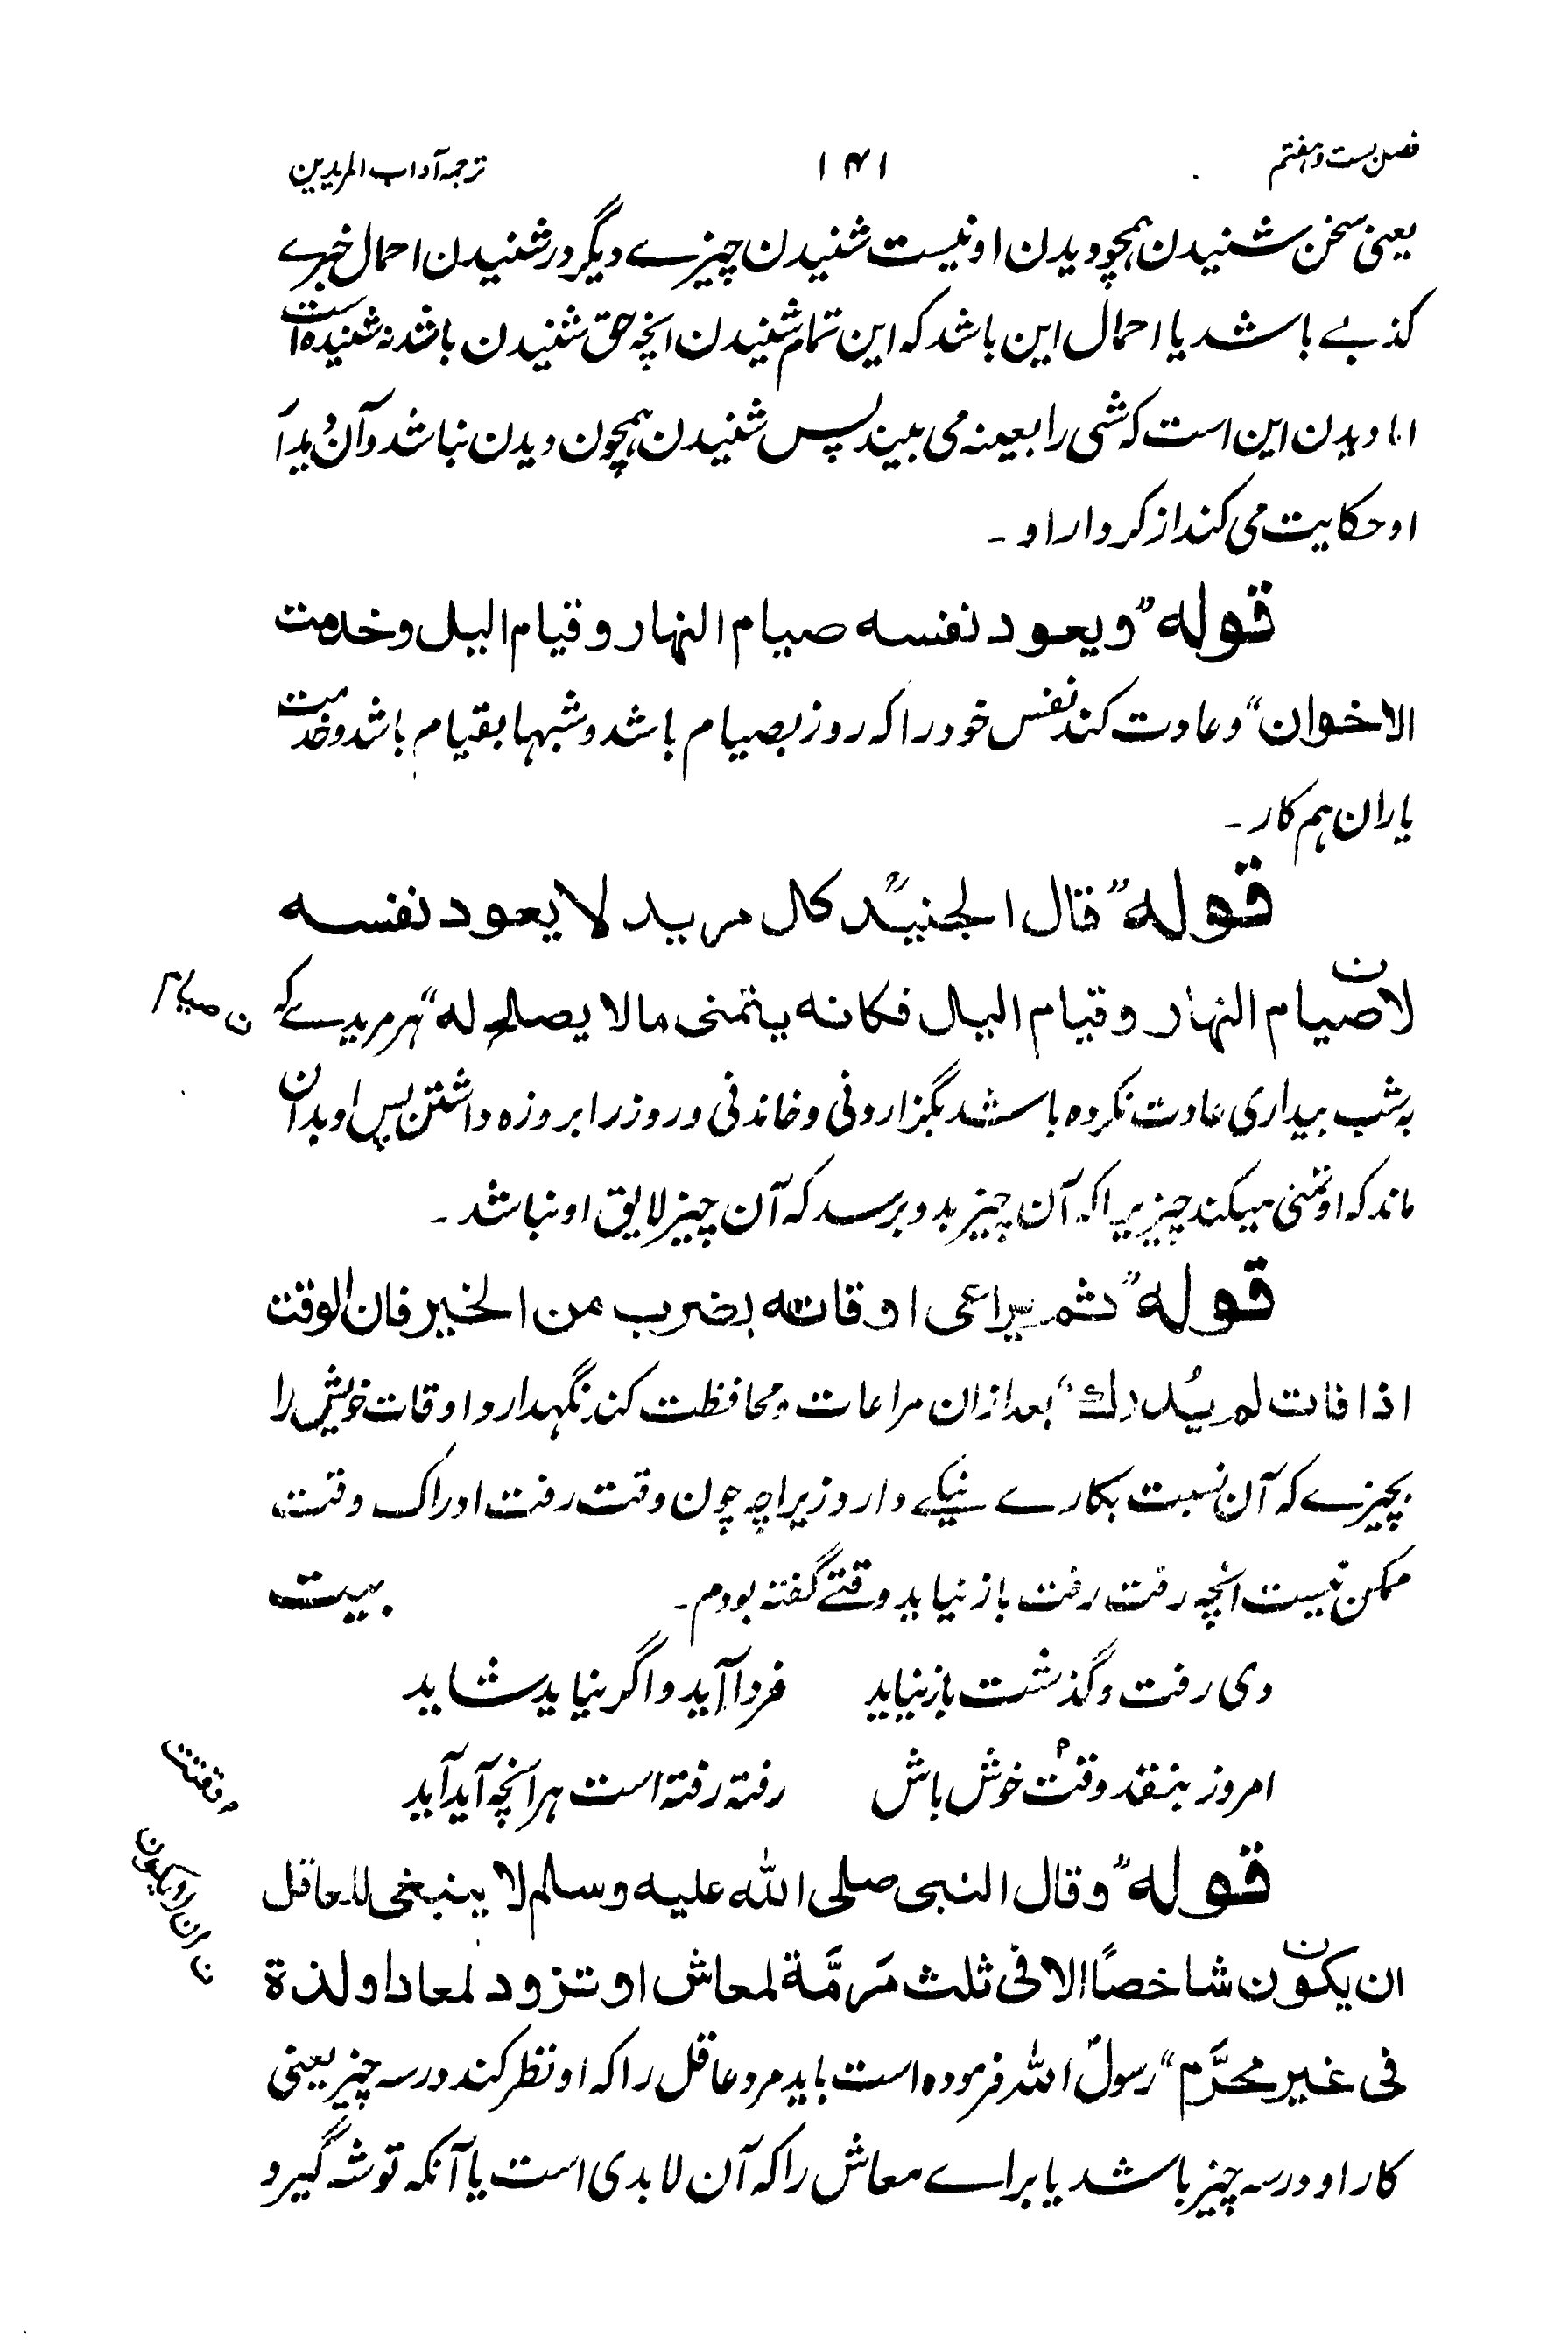 فصل بست و هفتم ۱۴۱ ترجمه آداب المریدین
یعنی سخن شنیدن همچو دیدن او نیست شنیدن چیزے دیگر در شنیدن احمال خبرے
کذبے باشد یا احمال این باشد که این تمام شنیدن انچه حق شنیدن باشد نه شنیده است
اما دیدن این است که شی را بعینه می بیند پس شنیدن همچون دیدن نباشد و آن
او حکایت می کند از کردار او ۔
قوله ”ویعود نفسه صیام النهار وقیام الیل وخدمت
الاخوان“ و عادت کند نفس خود را که روز بصیام باشد و شبها بقیام باشد و خدمت
یاران هم کار ۔
قوله ”قال الجنیدؒ کل مرید لا یعود نفسه
لان صیام النهار وقیام الیل فکانه یتمنی مالا یصلح له“ هر مریدے که
ن صیام
به شب بیداری عادت نکرده باشد بگزاردنی و خاندنی و روز را بروزه داشتن پس او بدان
ماند که او تمنی میکند چیزیرا که آن چیز بدو برسد که آن چیز لایق او نباشد ۔
قوله ”ثم یراعی اوقاته بضرب من الخیر فان الوقت
اذا فات لم یُدرک“ بعد ازان مراعات و محافظت کند نگهدارد اوقات خویش را
بچیزے که آن نسبت بکارے نیکے دارد زیراچه چون وقت رفت ادراک وقت
ممکن نیست انچه رفت رفت باز نیاید وقتے گفته بودم ۔ بیت
دی رفت و گذشت باز نیاید فردا آید و اگر نیاید شاید
امروز بنقد وقت خوش باش رفته رفته است هر آنچه آید آید
قوله ”وقال النبی صلی الله علیه وسلم لا ینبغی للعاقل
ان یکون شاخصًا الا فی ثلث مَرمَّة لمعاش او تزود لمعاد او لذة
فی غیر محرَّم“ رسولؐ الله فرموده است باید مرد عاقل را که او نظر کند در سه چیز یعنی
کار او در سه چیز باشد یا براے معاش را که آن لابدی است یا آنکه توشه گیرد